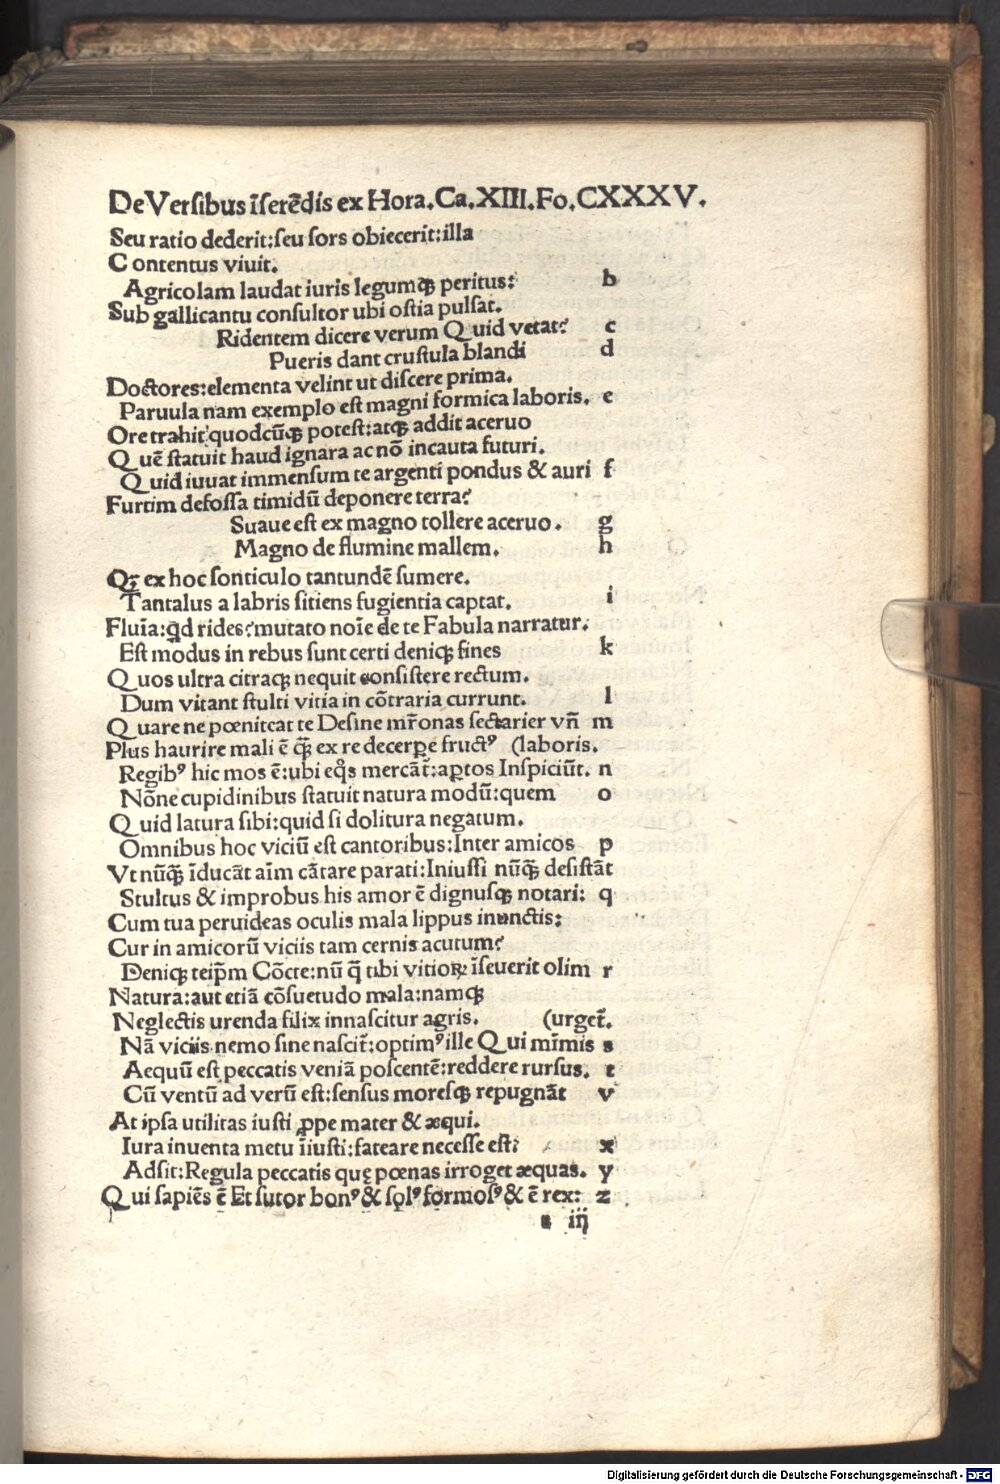 De Versibus īserēdis ex Hora. Ca. XIII. Fo. CXXXV.
Seu ratio dederit: seu sors obiecerit: illa
Contentus viuit.
Agricolam laudat iuris legumqꝫ peritus: b
Sub gallicantu consultor ubi ostia pulsat.
Ridentem dicere verum Quid vetat? c
Pueris dant crustula blandi d
Doctores: elementa velint ut discere prima.
Paruula nam exemplo est magni formica laboris. e
Ore trahit: quodcūqꝫ potest: atqꝫ addit aceruo
Quē statuit haud ignara ac nō incauta futuri.
Quid iuuat immensum te argenti pondus & auri f
Furtim defossa timidū deponere terra?
Suaue est ex magno tollere aceruo. g
Magno de flumine mallem. h
Qꝫ ex hoc fonticulo tantundē sumere.
Tantalus a labris sitiens fugientia captat. i
Fluīa: qd rides? mutato noīe de te Fabula narratur.
Est modus in rebus sunt certi deniqꝫ fines k
Quos ultra citraqꝫ nequit consistere rectum.
Dum vitant stulti vitia in cōtraria currunt. l
Quare ne pœniteat te Desine mr̄onas sectarier vn̄ m
Plus haurire mali ē qꝫ̄ ex re decerpe fructꝰ (laboris.
Regibꝰ hic mos ē: ubi eq̊s mercāt̄: aptos Inspiciūt. n
Nōne cupidinibus statuit natura modū: quem o
Quid latura sibi: quid si dolitura negatum.
Omnibus hoc viciū est cantoribus: Inter amicos p
Vt nūqꝫ̄ īducāt aīm cātare parati: Iniussi nūqꝫ̄ desistāt
Stultus & improbus his amor ē dignusqꝫ notari: q
Cum tua peruideas oculis mala lippus inunctis:
Cur in amicorū viciis tam cernis acutum?
Deniqꝫ teip̄m Cōcte: nū q̄ tibi vitioꝝ īseuerit olim r
Natura: aut etiā cōsuetudo mala: namqꝫ
Neglectis urenda filix innascitur agris. (urget̄.
Nā viciis nemo sine nascit̄: optimꝰ ille Qui mīmis s
Aequū est peccatis veniā poscentē: reddere rursus. t
Cū ventū ad verū est: sensus moresqꝫ repugnāt v
At ipsa utilitas iusti ꝓpe mater & æqui.
Iura inuenta metu īiusti: fateare necesse est: x
Adsit: Regula peccatis quę pœnas irroget æquas. y
Qui sapiēs ē Et sutor bonꝰ & solꝰ formosꝰ & ē rex: z
s iij
Digitalisierung gefördert durch die Deutsche Forschungsgemeinschaft - DFG